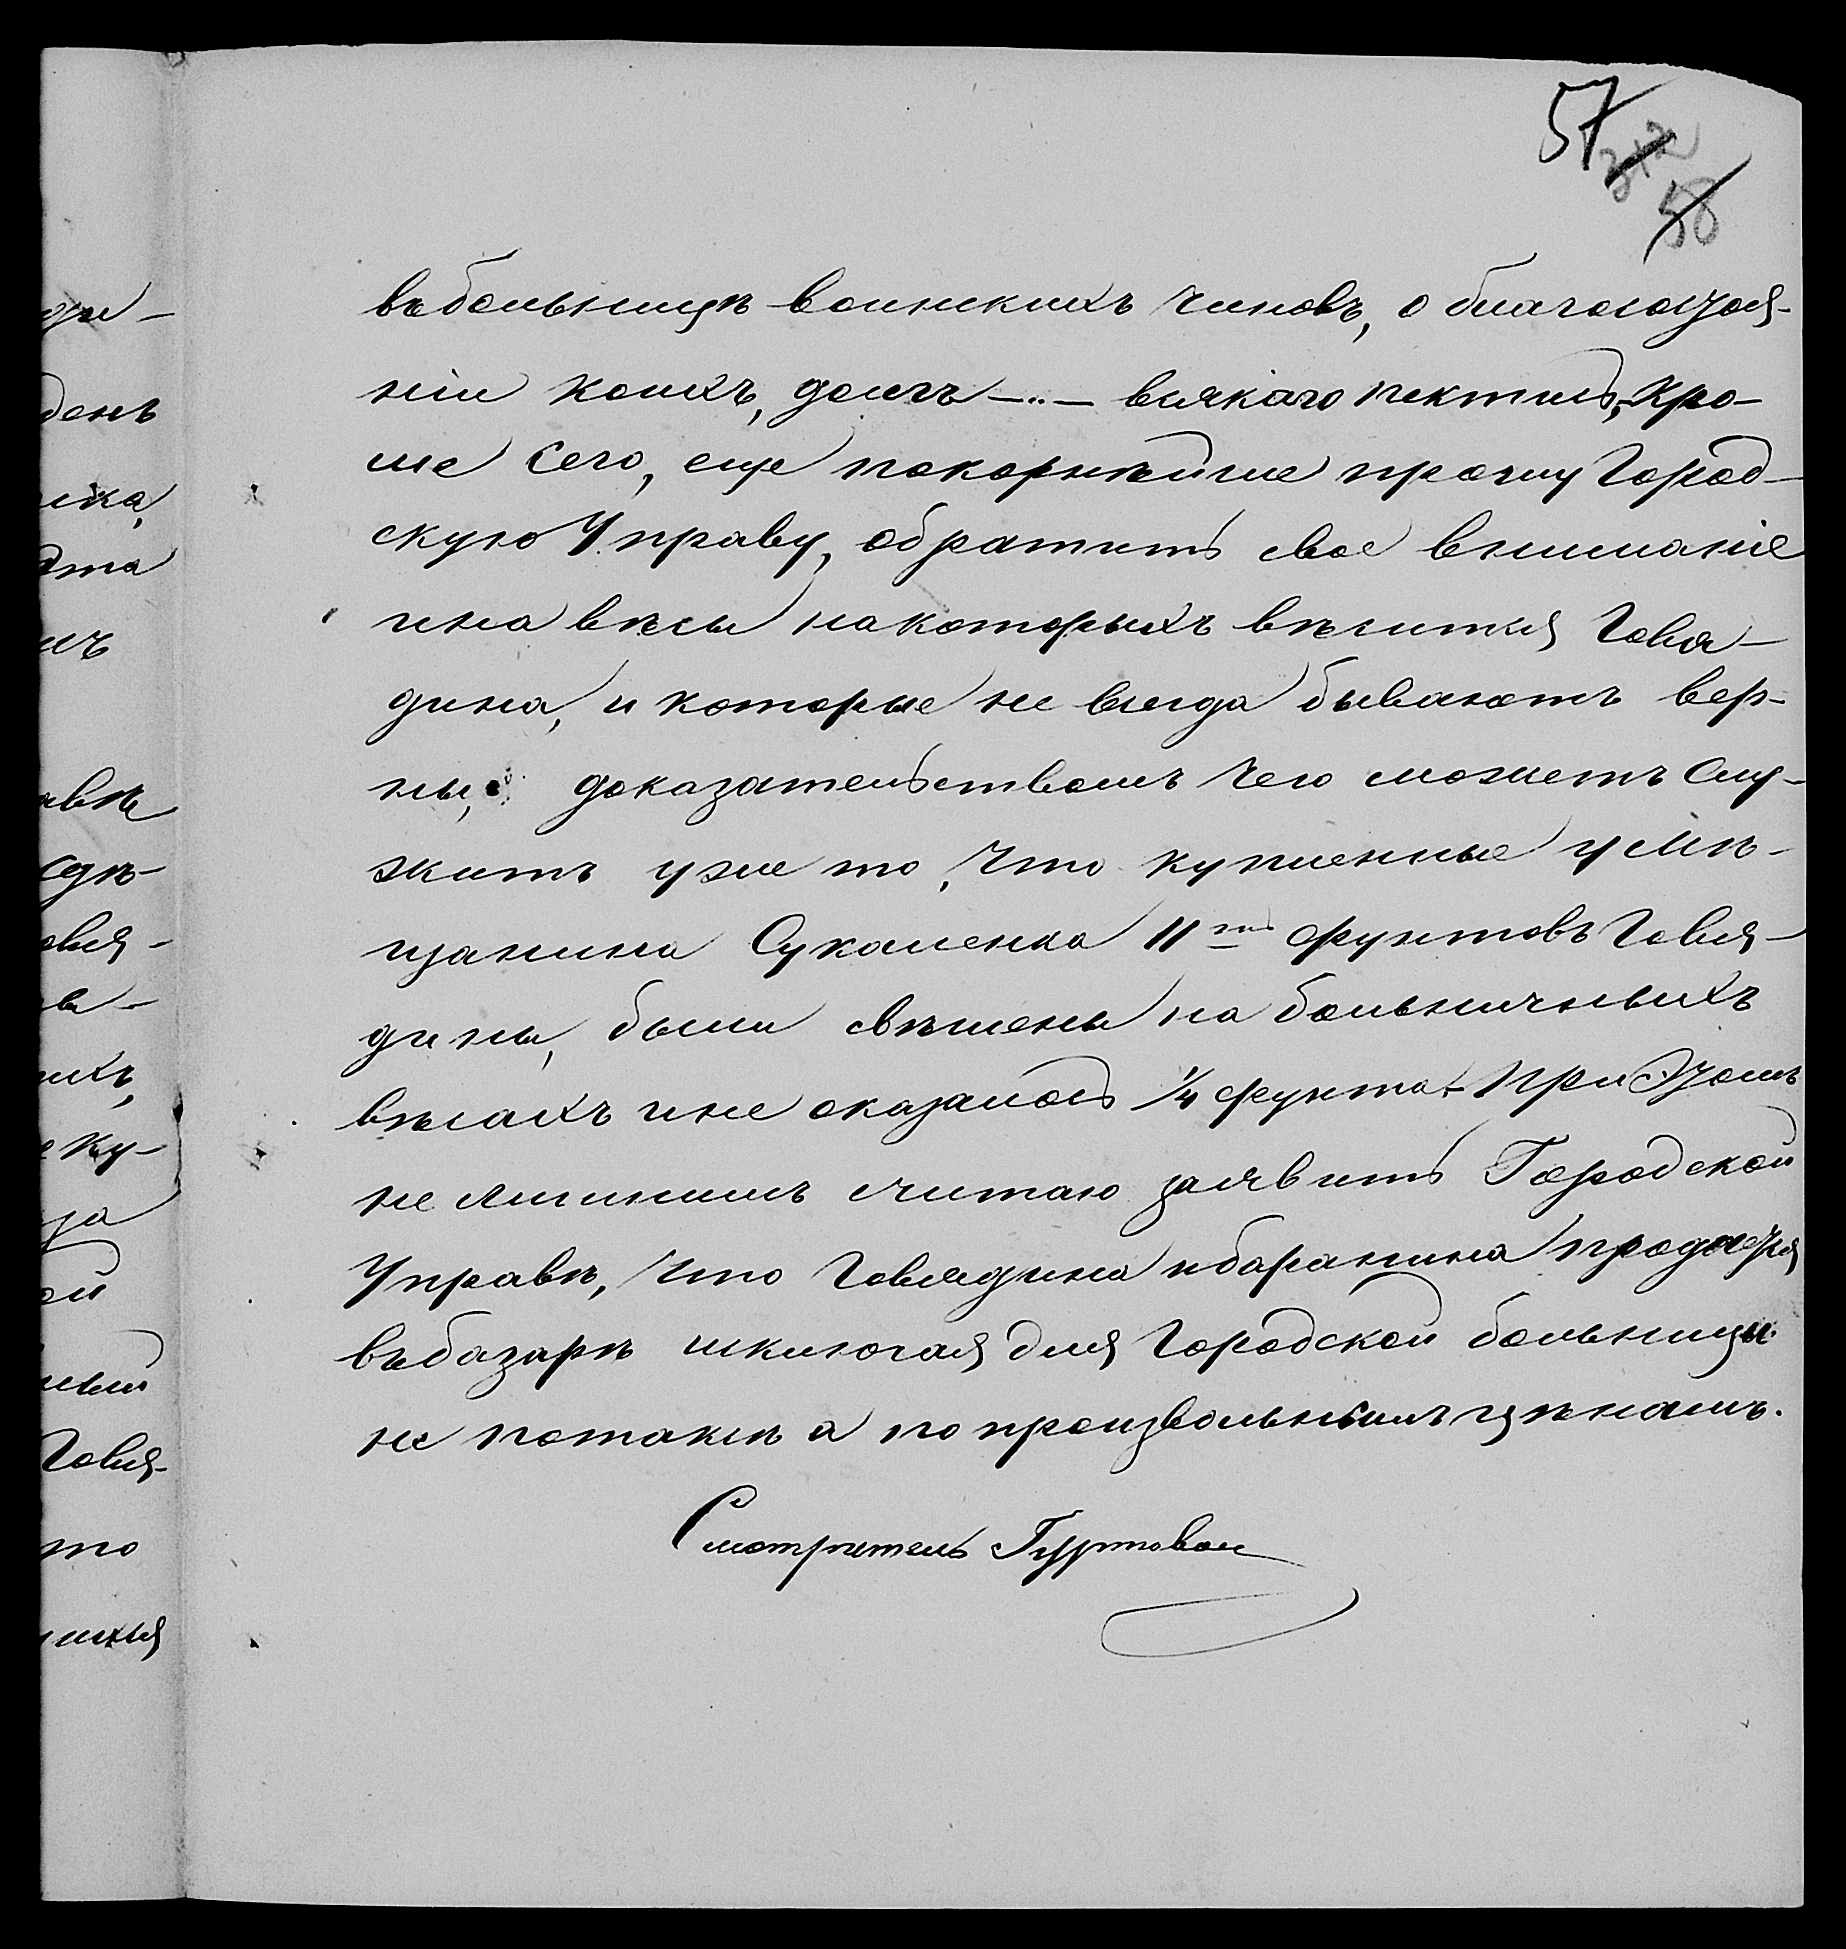 57
58
въ больницѣ воинскихъ чиновъ, о благосостоя-
ніи коихъ, долгъ —„— всякаго пектись, Кро-
ме сего, еще покорнѣйше прошу Город-
скую Управу, обратить свое вниманіе
и на вѣсы на которыхъ вѣсится говя-
дина, и которые не всегда бываютъ вер-
ны, доказательствомъ чего можетъ слу-
жить уже то, что купленные у мѣ-
щанина Сукаленка 11ть фунтовъ говя-
дины, были свѣшены на больничныхъ
вѣсахъ и не оказалось 1/4 фунта. При этомъ
не лишнимъ считаю заявить Городской
Управѣ, что говядина и баранина продается
въ базарѣ исключая для Городской больницы
не по таксѣ а по произвольнымъ цѣнамъ.
Смотритель Гуртовой
день
ика,
дта
мъ
авѣ
судѣ-
овя-
ихъ,
ку-
за
ой
ный
Говя-
то